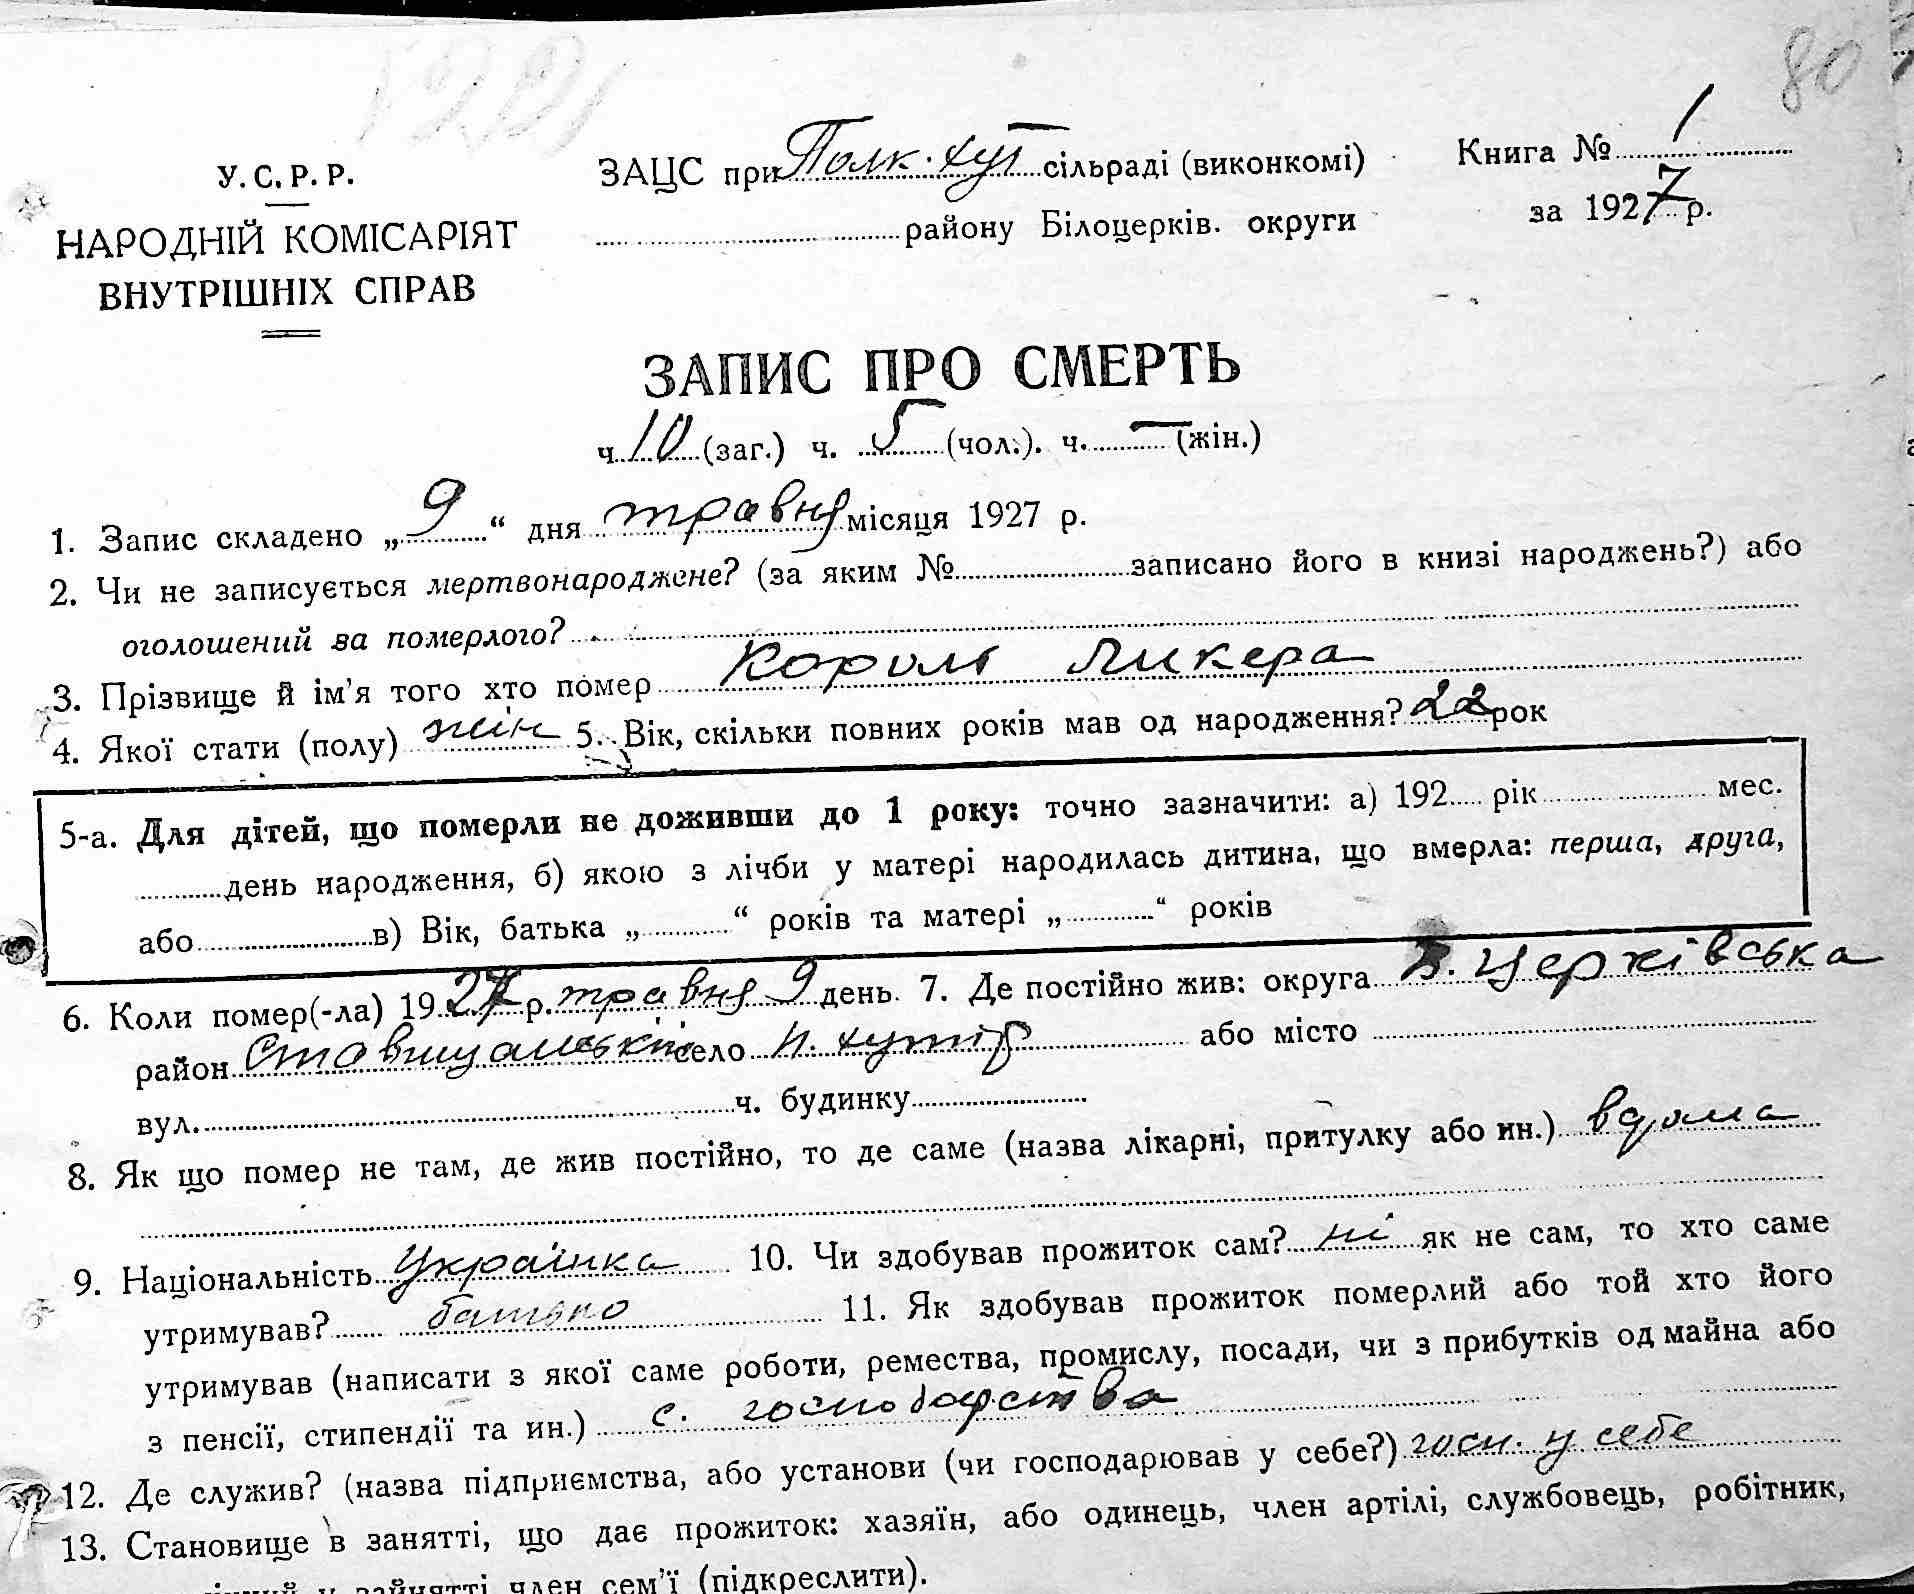 80
У. С. Р. Р.
НАРОДНІЙ КОМІСАРІЯТ
ВНУТРІШНІХ СПРАВ
ЗАЦС при Полк. хут сільраді (виконкомі)
району Білоцерків. округи
Книга № 1
за 1927 р.
ЗАПИС ПРО СМЕРТЬ
ч. 10 (заг.) ч. 5 (чол.). ч. — (жін.)
1. Запис складено „ 9 “ дня травня місяця 1927 р.
2. Чи не записується мертвонароджене? (за яким № записано його в книзі народжень?) або
оголошений за померлого?
3. Прізвище й ім'я того хто помер Король Ликера
4. Якої стати (полу) жін 5. Вік, скільки повних років мав од народження? 22 рок
5-а. Для дітей, що померли не доживши до 1 року: точно зазначити: а) 192 рік мес.
день народження, б) якою з лічби у матері народилась дитина, що вмерла: перша, друга,
або в) Вік, батька „ “ років та матері „ “ років
6. Коли помер(-ла) 1927 р. травня 9 день. 7. Де постійно жив: округа Б. Церківська
район Ставищанський село п. хутір або місто
вул. ч. будинку
8. Як що помер не там, де жив постійно, то де саме (назва лікарні, притулку або ин.) вдома
9. Національність Українка 10. Чи здобував прожиток сам? ні як не сам, то хто саме
утримував? батько 11. Як здобував прожиток померлий або той хто його
утримував (написати з якої саме роботи, ремества, промислу, посади, чи з прибутків од майна або
з пенсії, стипендії та ин.) с. господарства
12. Де служив? (назва підприємства, або установи (чи господарював у себе?) госп. у себе
13. Становище в занятті, що дає прожиток: хазяїн, або одинець, член артілі, службовець, робітник,
у зайнятті член сем'ї (підкреслити).